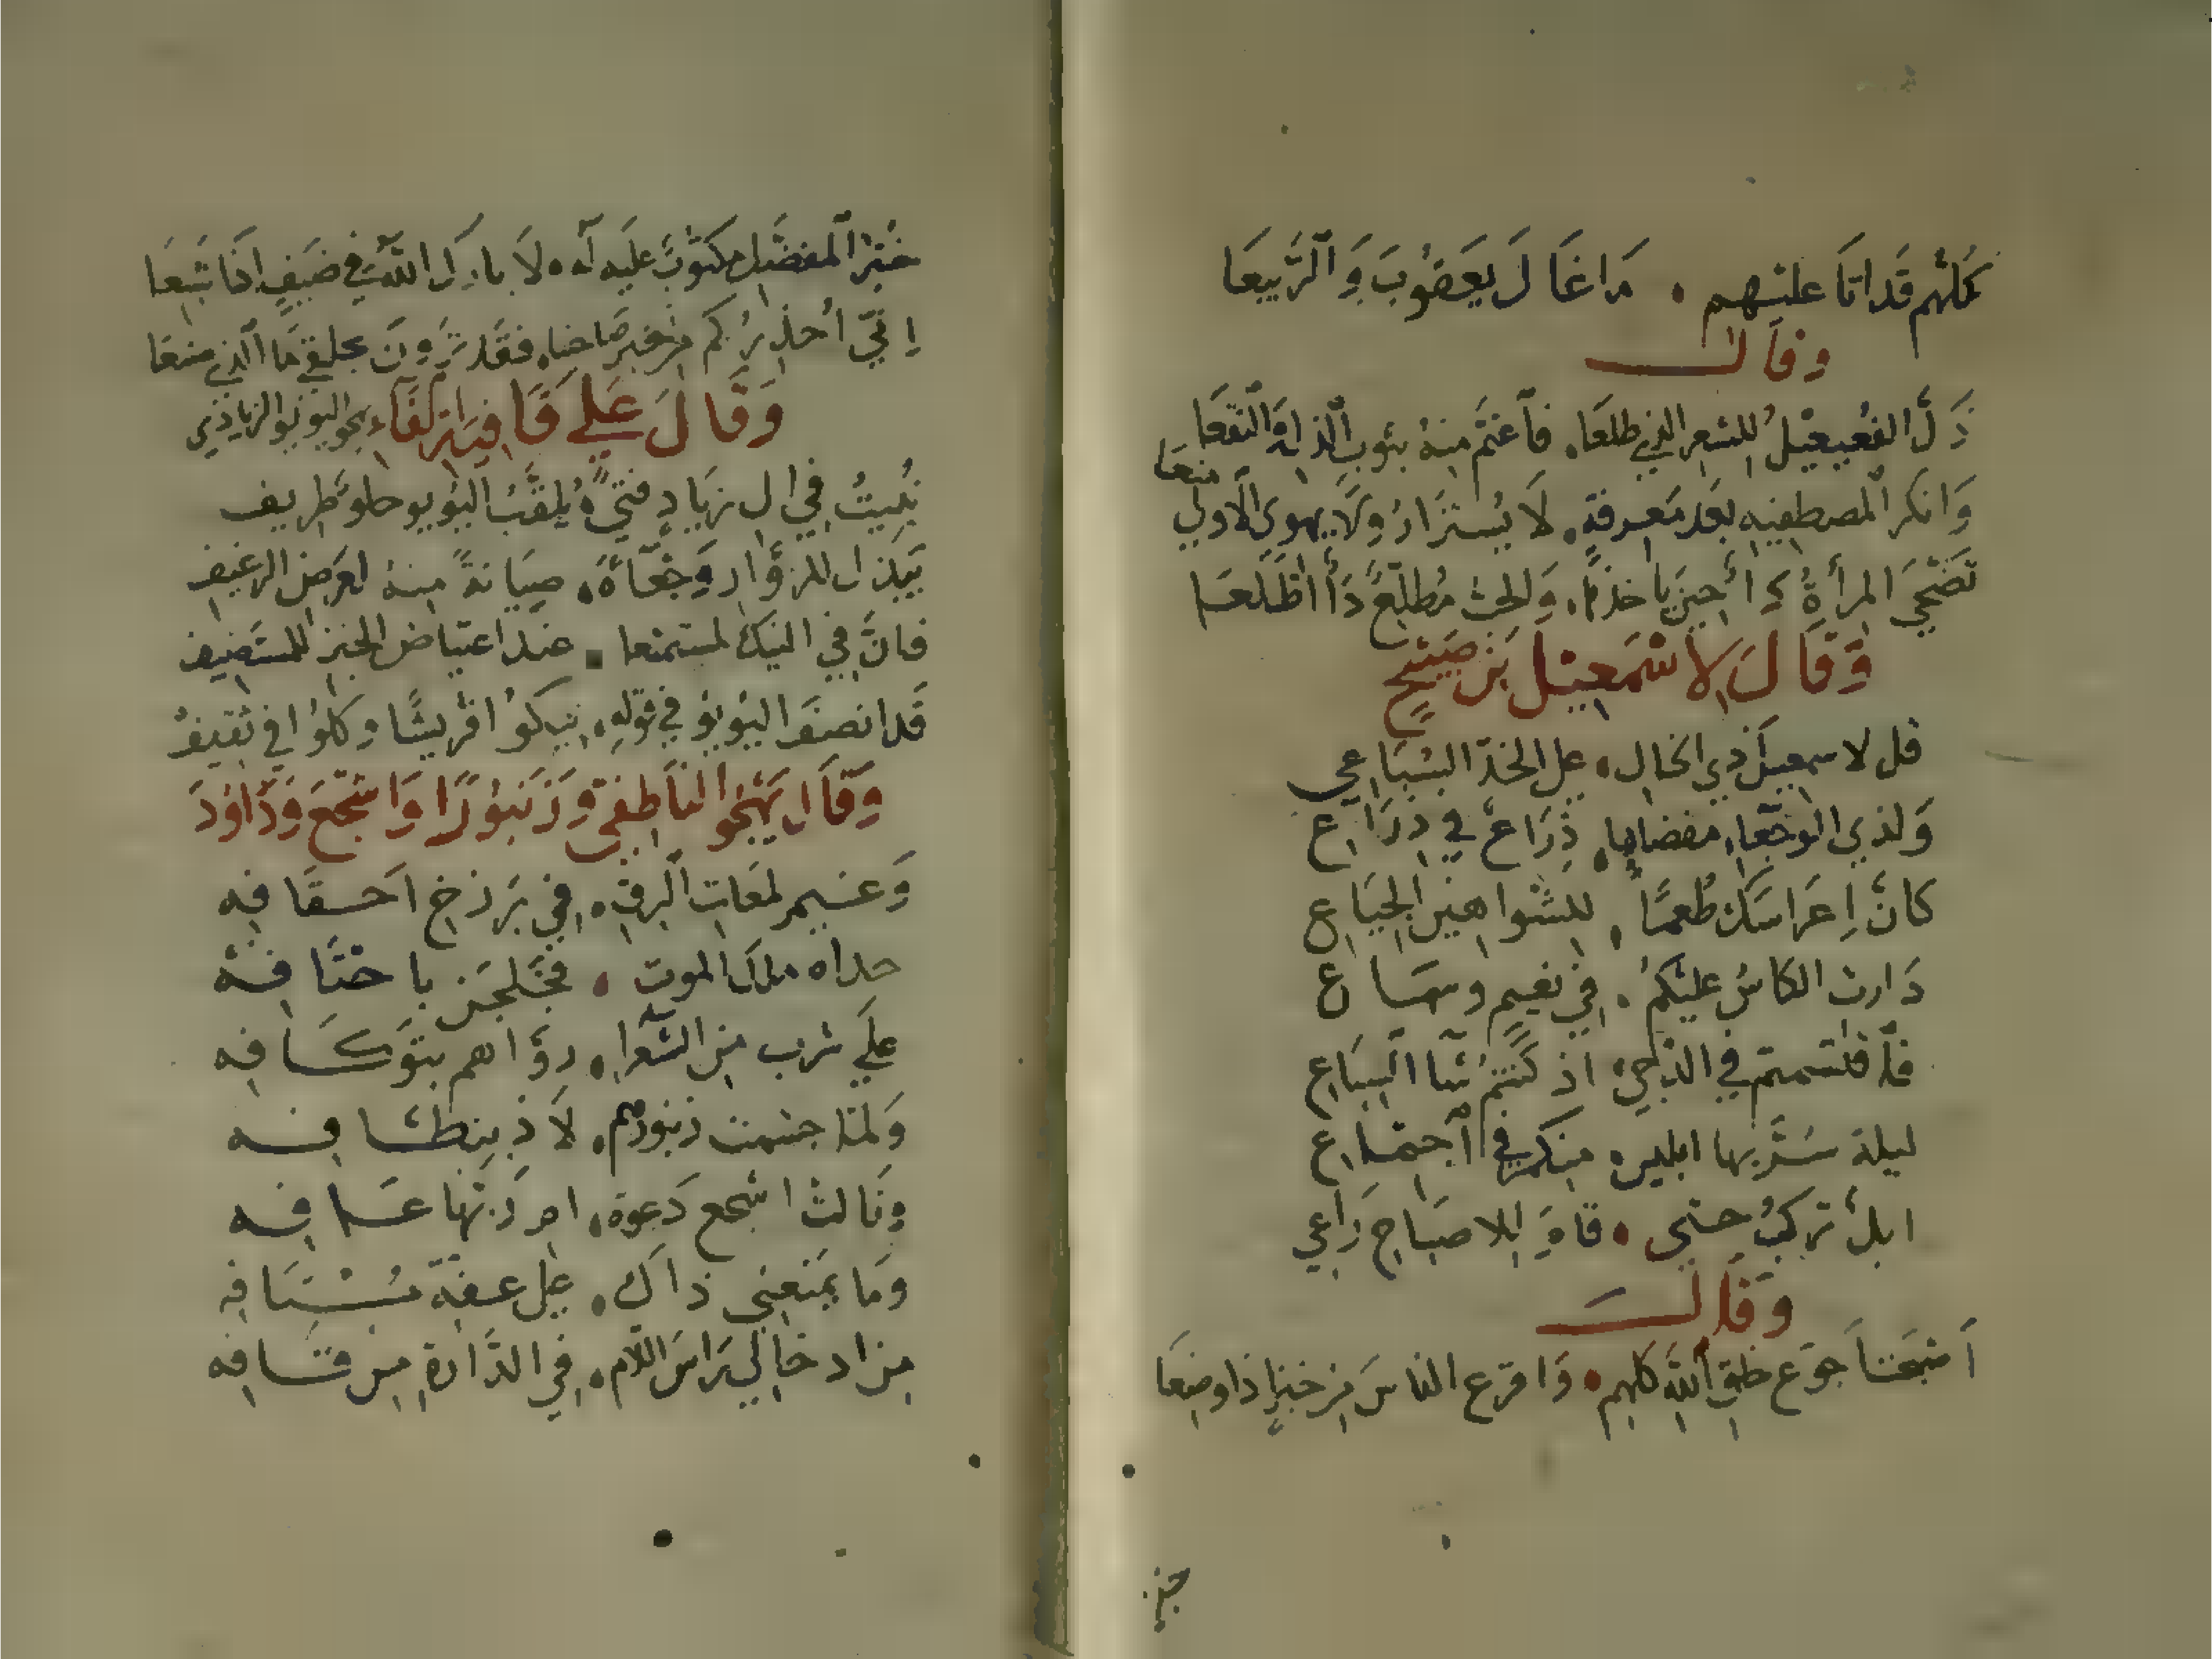 كلهم قد اتا عليهم . ما غال يعقوب والربيعا
وقال
ذل للشعر الذي طلعا . فاغتم منه بثوب الذل والتفعا
وانكر المصطفيه بعد معرفة . لا يستزار ولا يهوى الاولي
منعا
تضحي المرأة حين ياخذها
وقال لاسمعيل بن صبيح
قل لاسمعيل ذي الخال . على الخد السباعي
ولذي . ذراع في ذراع
كان اعراسك طعما . للشواهين الجياع
دارت الكاس عليكم . في نعيم وسماع
فاقتسمتم في الدجى اذ كنتم شاء السباع
ليلة سر بها ابليس . منكم في اجتماع
ابل تركب حتى . قام للاصباح راعي
وقال
اشبعنا جوع خلق الله كلهم . وافزع الناس من خبز اذا وضعا
خبز
خبز المفضل مكتوب عليه . لا بارك الله في ضيف اذا شبعا
اني احذركم من خبز صاحبنا . فقد ترون بحلقي ما الذي صنعا
وقال علي قافية الفاء يهجو اليويو الزيادي
نبيت في ال زياد فتى . يلقب اليويو حلو ظريف
يبذل للزوار وجعاءه . صيانة منه لعرض الرغيف
فان في النيك لمستمتعا . عند اعتياض الخبز للمستضيف
قد انصف اليويو في قوله . نيكوا قريشا وكلوا في ثقيف
وقال يهجو الناطفي وزنبورا واشجع وداود
وعسيم لمعات البرق . في برزخ احقافه
حداه ملك الموت . فخلجن باحتافه
علي شرب من الشعراء . رواهم بتوكافه
ولما جشمت زنبورهم . لاذ بنطافه
ونالت اشجع دعوة . امردتها عافه
وما يمنعني ذاك . على عفة
من ادخالي راس اللام . في الدارة من قافه